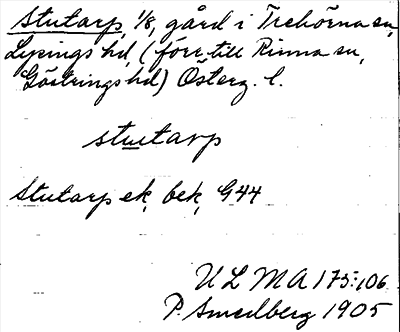 Stutarp, 1/8, gård i Trehörna sn,
Lysings hd, (förr till Rinna sn,
Göstrings hd) Österg. l.
stutarp
Stutarp ek, bek, G44
ULMA 175:106
P. Smedberg 1905